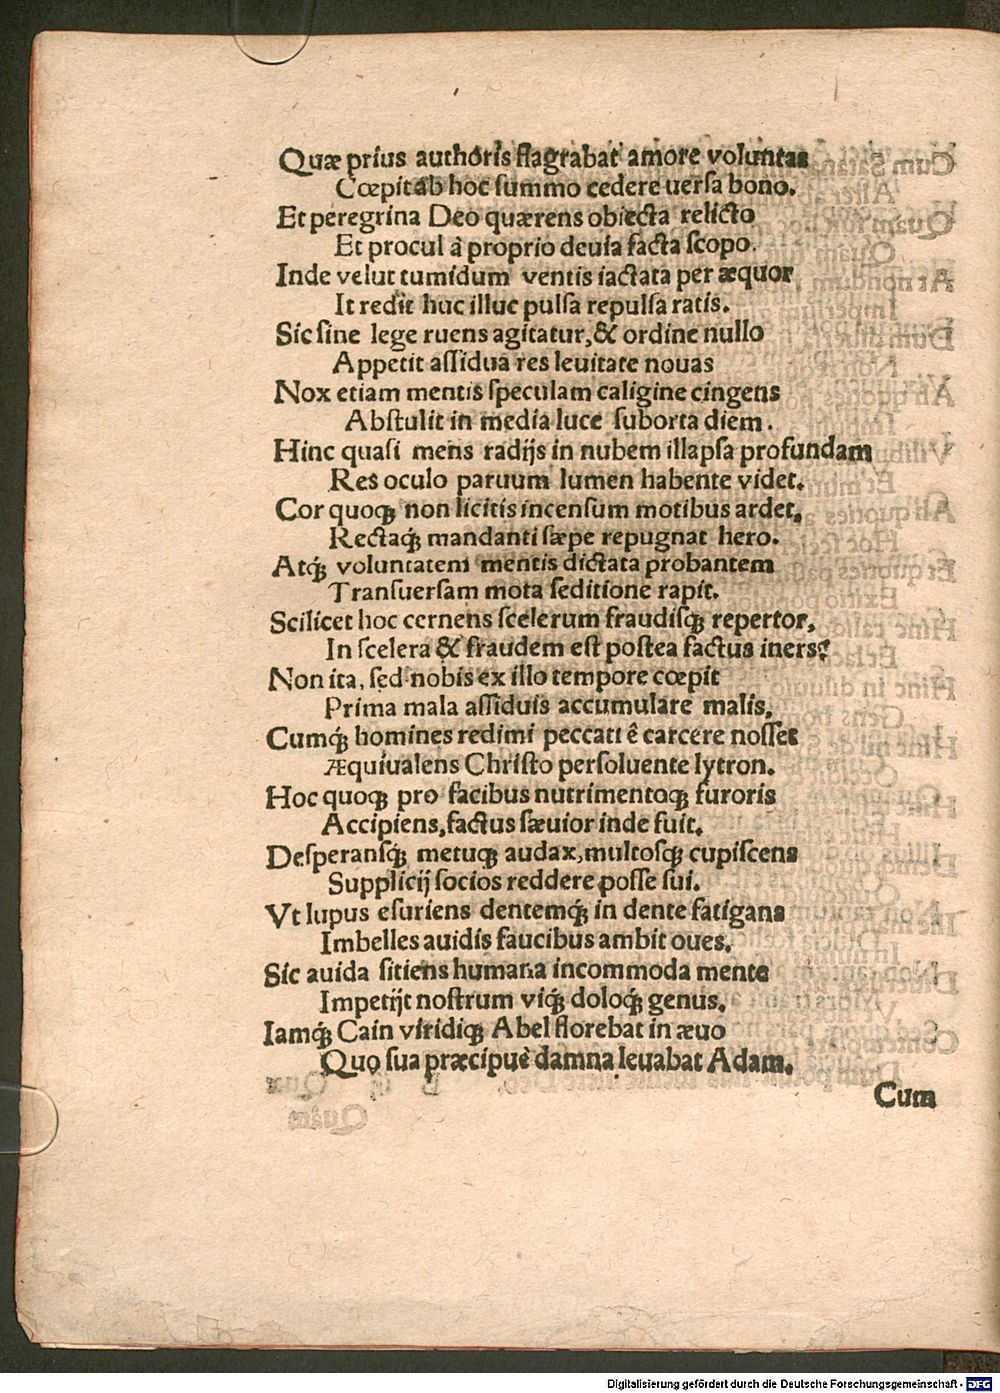 Quæ prius authoris flagrabat amore voluntas
Cœpit ab hoc summo cedere uersa bono.
Et peregrina Deo quærens obiecta relicto
Et procul â proprio deuia facta scopo.
Inde velut tumidum ventis iactata per æquor
It redit huc illuc pulsa repulsa ratis.
Sic sine lege ruens agitatur, & ordine nullo
Appetit assidua res leuitate nouas
Nox etiam mentis speculam caligine cingens
Abstulit in media luce suborta diem.
Hinc quasi mens radijs in nubem illapsa profundam
Res oculo paruum lumen habente videt.
Cor quoqꝫ non licitis incensum motibus ardet,
Rectaqꝫ́ mandanti sæpe repugnat hero.
Atqꝫ́ voluntatem mentis dictata probantem
Transuersam mota seditione rapit.
Scilicet hoc cernens scelerum fraudisqꝫ repertor,
In scelera & fraudem est postea factus iners?
Non ita, sed nobis ex illo tempore cœpit
Prima mala assiduis accumulare malis,
Cumqꝫ́ homines redimi peccati ê carcere nosset
Æquiualens Christo persoluente lytron.
Hoc quoqꝫ pro facibus nutrimentoqꝫ furoris
Accipiens, factus sæuior inde fuit.
Desperansqꝫ́ metuqꝫ audax, multosqꝫ cupiscens
Supplicij socios reddere posse sui.
Vt lupus esuriens dentemqꝫ́ in dente fatigans
Imbelles auidis faucibus ambit oues.
Sic auida sitiens humana incommoda mente
Impetijt nostrum viqꝫ́ doloqꝫ́ genus.
Iamqꝫ́ Cain viridiqꝫ Abel florebat in æuo
Quo sua præcipuè damna leuabat Adam.
Cum
Digitalisierung gefördert durch die Deutsche Forschungsgemeinschaft - DFG